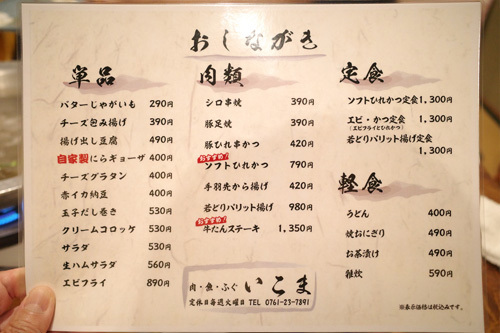 おしながき
単品
バターじゃがいも 290円
チーズ包み揚げ 390円
揚げ出し豆腐 490円
自家製にらギョーザ 400円
チーズグラタン 400円
赤イカ納豆 400円
玉子だし巻き 530円
クリームコロッケ 530円
サラダ 530円
生ハムサラダ 560円
エビフライ 890円
肉類
シロ串焼 390円
豚足焼 390円
豚ひれ串かつ 420円
おすすめ!
ソフトひれかつ 790円
手羽先から揚げ 420円
若どりパリット揚げ 980円
おすすめ!
牛たんステーキ 1,350円
定食
ソフトひれかつ定食 1,300円
エビ・かつ定食 1,300円
(エビフライとひれかつ)
若どりパリット揚げ定食
1,300円
軽食
うどん 400円
焼おにぎり 490円
お茶漬け 490円
雑炊 590円
肉・魚・ふぐ いこま
定休日毎週火曜日 TEL 0761-23-7891
※表示価格は税込みです。